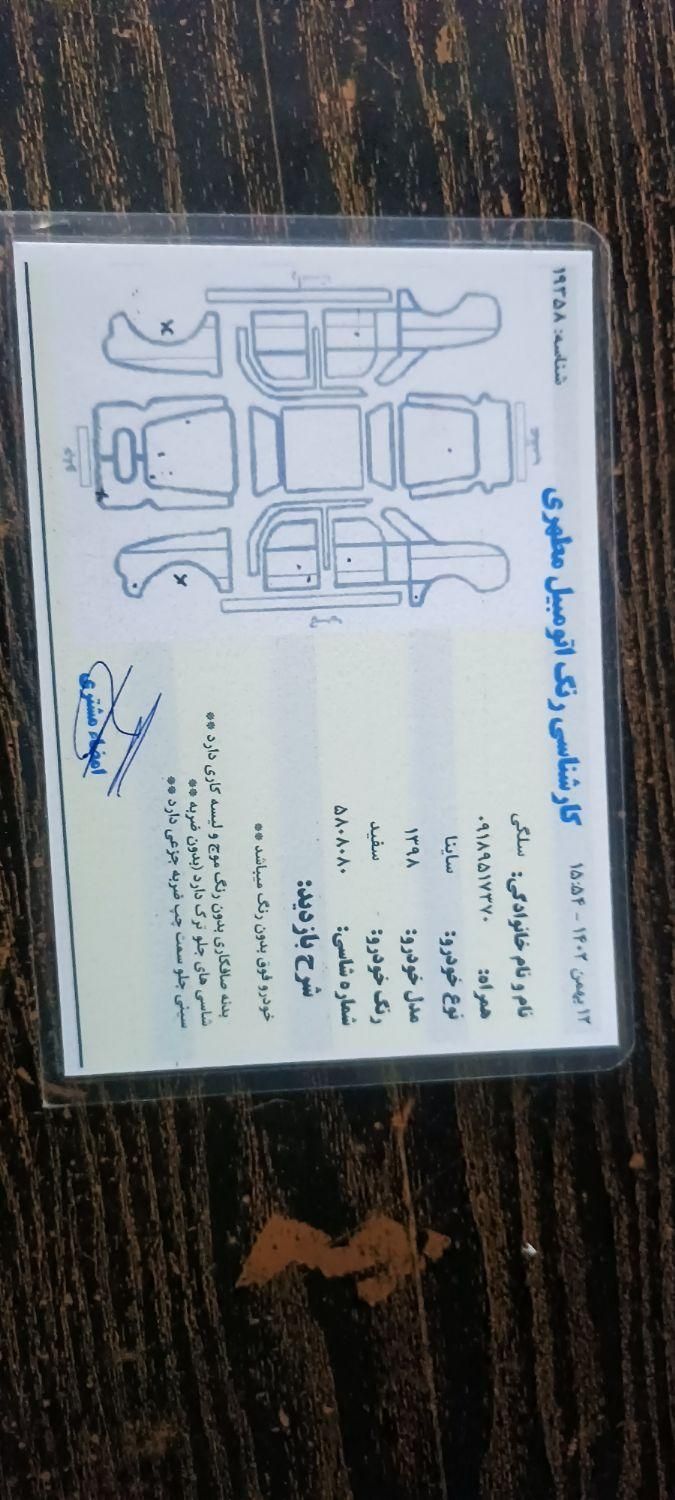 ۱۲ بهمن ۱۴۰۲ - ۱۵:۵۴
شناسه: ۱۹۳۵۸
کارشناسی رنگ اتومبیل مطهری
نام و نام خانوادگی: سلگی
همراه: ۰۹۱۸۹۵۱۷۳۷۰
نوع خودرو: ساینا
مدل خودرو: ۱۳۹۸
رنگ خودرو: سفید
شماره شاسی: ۵۸۰۸۰۸۰
شرح بازدید:
خودرو فوق بدون رنگ میباشد **
بدنه صافکاری بدون رنگ موج و لیسه کاری دارد **
شاسی های جلو ترک دارد (بدون ضربه **
سینی جلو سمت چپ ضربه جزعی دارد **
امضاء مشتری